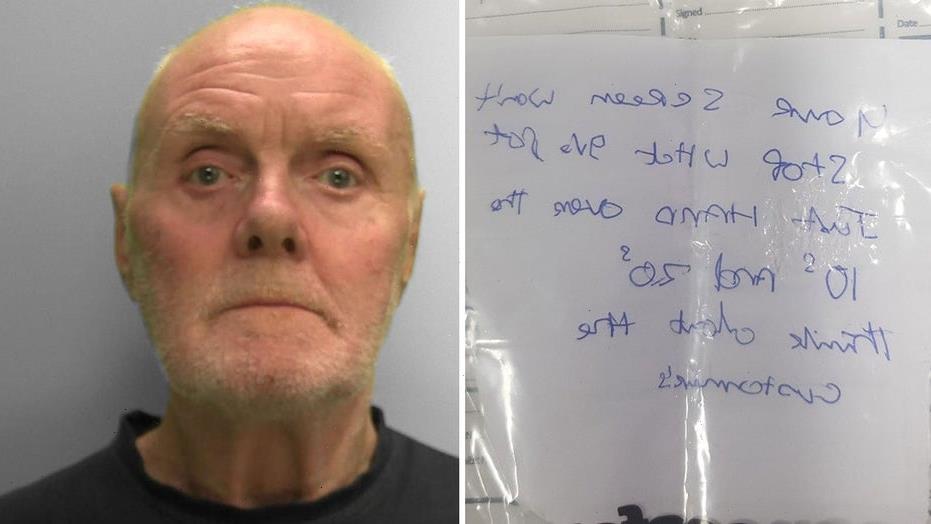 Signed
Date
Your Screen won't
Stop What I've got
Just HAND over the
10s And 20s
think about the
customer's